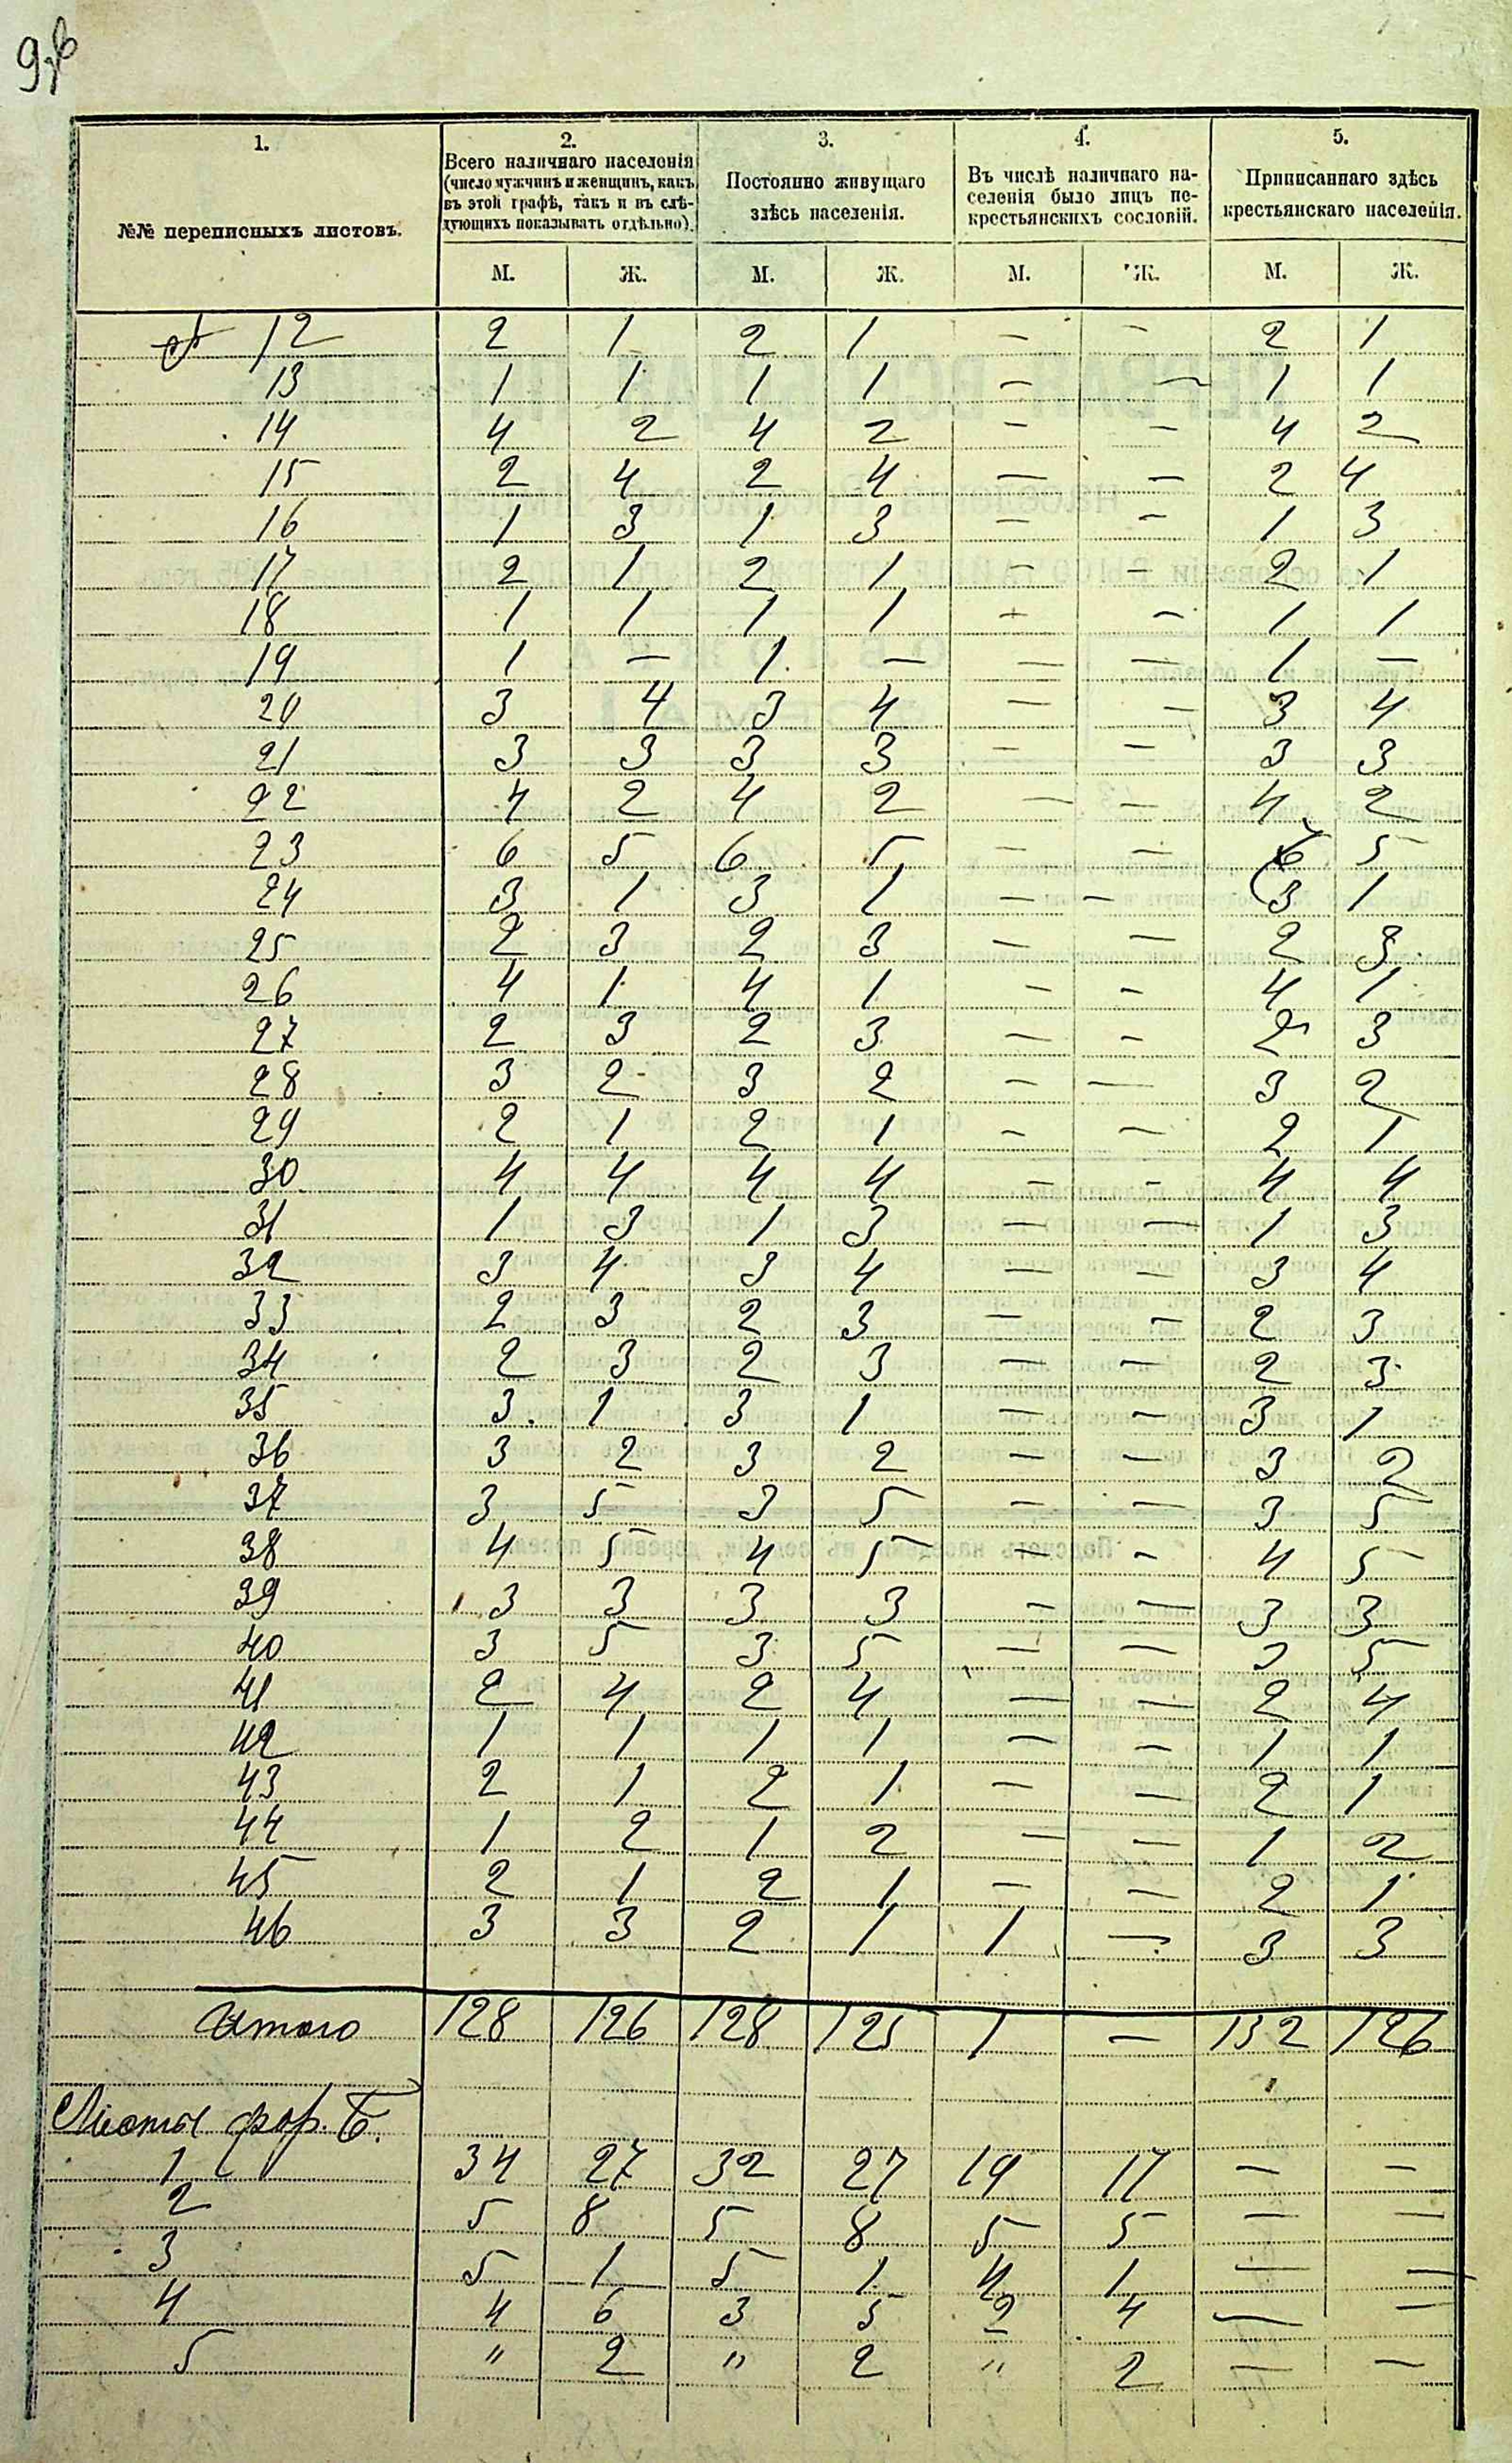 1. 2. 3. 4. 5.
№№ переписныхъ листовъ.
Всего наличнаго населенія
(число мужчинъ и женщинъ, какъ
въ этой графѣ, такъ и въ слѣ-
дующихъ показывать отдѣльно).
Постоянно живущаго
здѣсь населенія.
Въ числѣ наличнаго на-
селенія было лицъ не-
крестьянскихъ сословій.
Приписаннаго здѣсь
крестьянскаго населенія.
М. Ж. М. Ж. М. Ж. М. Ж.
12 2 1 2 1 — — 2 1
13 1 1 1 1 — — 1 1
14 4 2 4 2 — — 4 2
15 2 4 2 4 — — 2 4
16 1 3 1 3 — — 1 3
17 2 1 2 1 — — 2 1
18 1 1 1 1 — — 1 1
19 1 — 1 — — — 1 —
20 3 4 3 4 — — 3 4
21 3 3 3 3 — — 3 3
22 4 2 4 2 — — 4 2
23 6 5 6 5 — — 5
24 3 1 3 1 — — 3 1
25 2 3 2 3 — — 2 3
26 4 1 4 1 — — 4 1
27 2 3 2 3 — — 2 3
28 3 2 3 2 — — 3 2
29 2 1 2 1 — — 2 1
30 4 4 4 4 — — 4 4
31 1 3 1 3 — — 1 3
32 3 4 3 4 — — 3 4
33 2 3 2 3 — — 2 3
34 2 3 2 3 — — 2 3
35 3 1 3 1 — — 3 1
36 3 2 3 2 — — 3 2
37 3 5 3 5 — — 3 5
38 4 5 4 5 — — 4 5
39 3 3 3 3 — — 3 3
40 3 5 3 5 — — 3 5
41 2 4 2 4 — — 2 4
42 1 1 1 1 — — 1 1
43 2 1 2 1 — — 2 1
44 1 2 1 2 — — 1 2
45 2 1 2 1 — — 2 1
46 3 3 2 1 1 — 3 3
Итого 128 126 128 125 1 — 132 126
Листы фор. Б.
1 34 27 32 27 19 17 — —
2 5 8 5 8 5 5 — —
3 5 1 5 1 4 1 — —
4 4 6 3 5 2 4 — —
5 " 2 " 2 " 2 — —